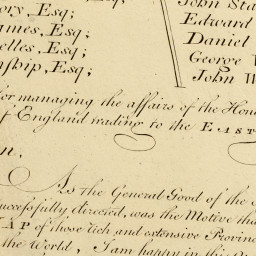 ory Esq;
ames, Esq;
elles, Esq;
nship, Esq;
John Sta
Edward
Daniel
George
John W
for managing the affairs of the Hono
of England trading to the EAST
n.
As the General Good of the
successfully directed, was the Motive tha
MAP of those rich and extensive Provin
the World, I am happy in this